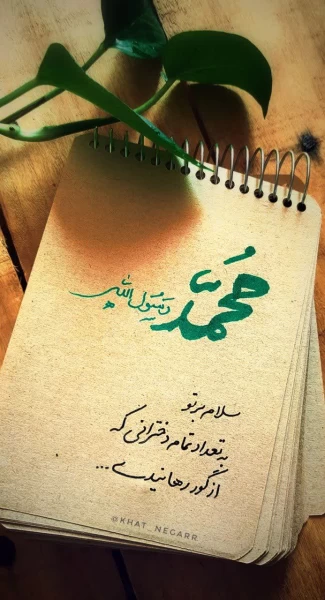 محمد
رسول الله
سلام بر تو
به تعداد تمام دخترانی که
از گور رهانیدی...
@KHAT_NEGARR